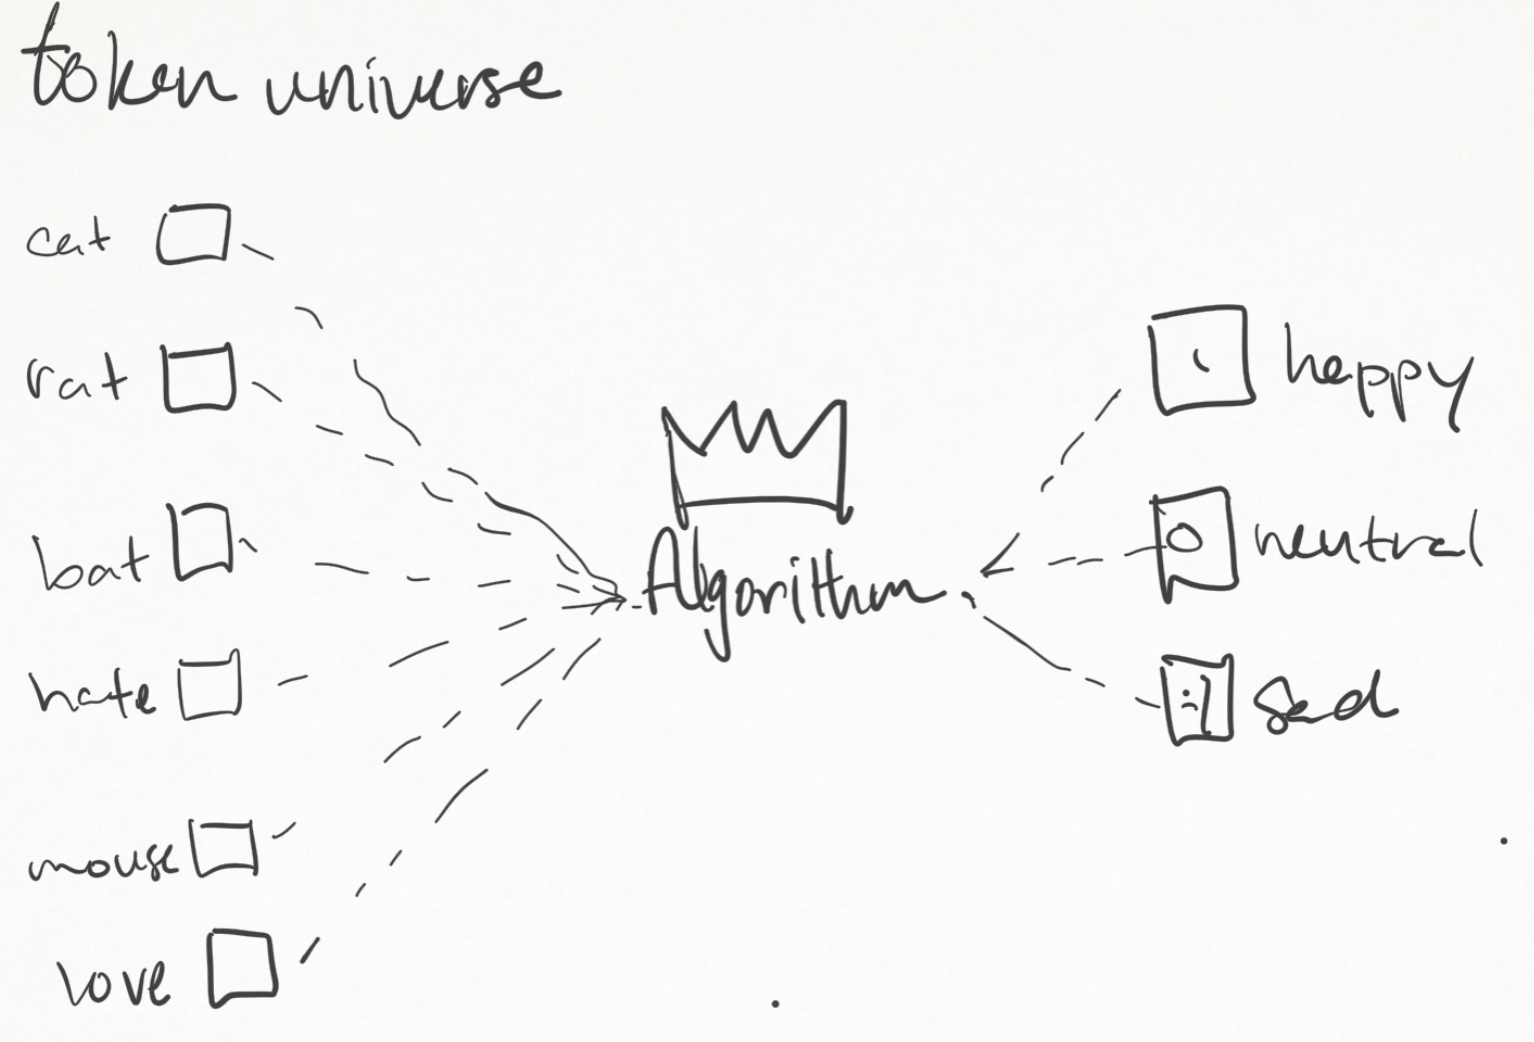 token universe
cat
rat
bat
hate
mouse
love
Algorithm
happy
neutral
sad